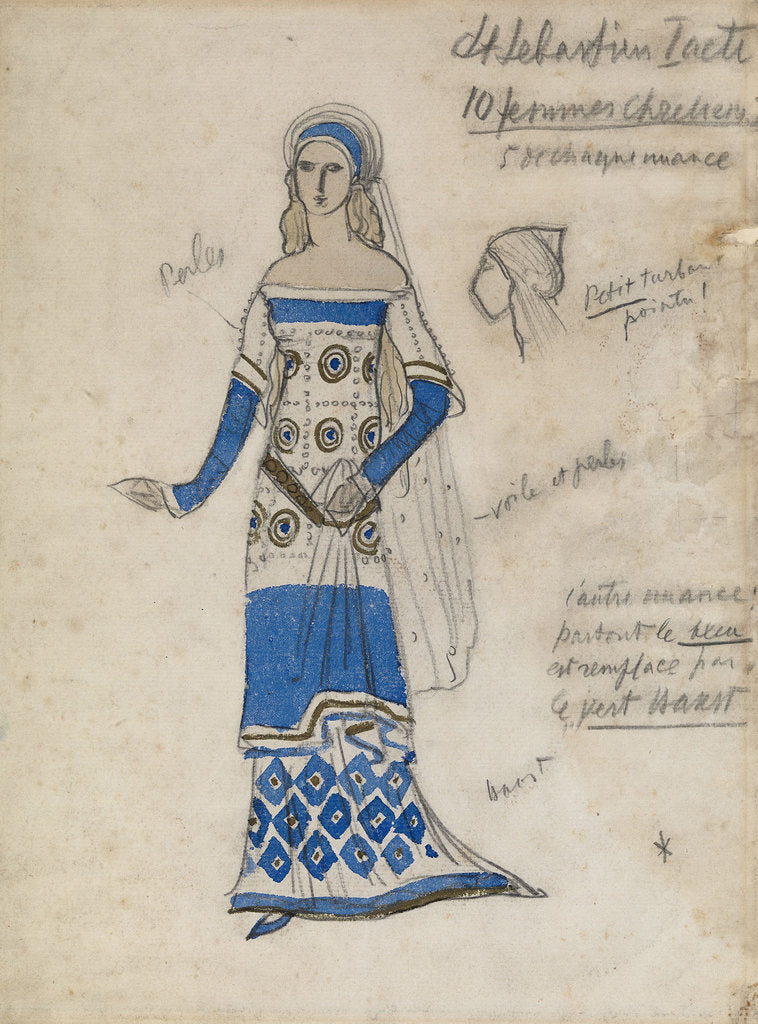 St Sebastien I acte
10 femmes Chretiens
5 de chaque nuance
Perles
Petit turban
pointu!
voile et perles
l'autre nuance!
partout le bleu
est remplace par
le vert